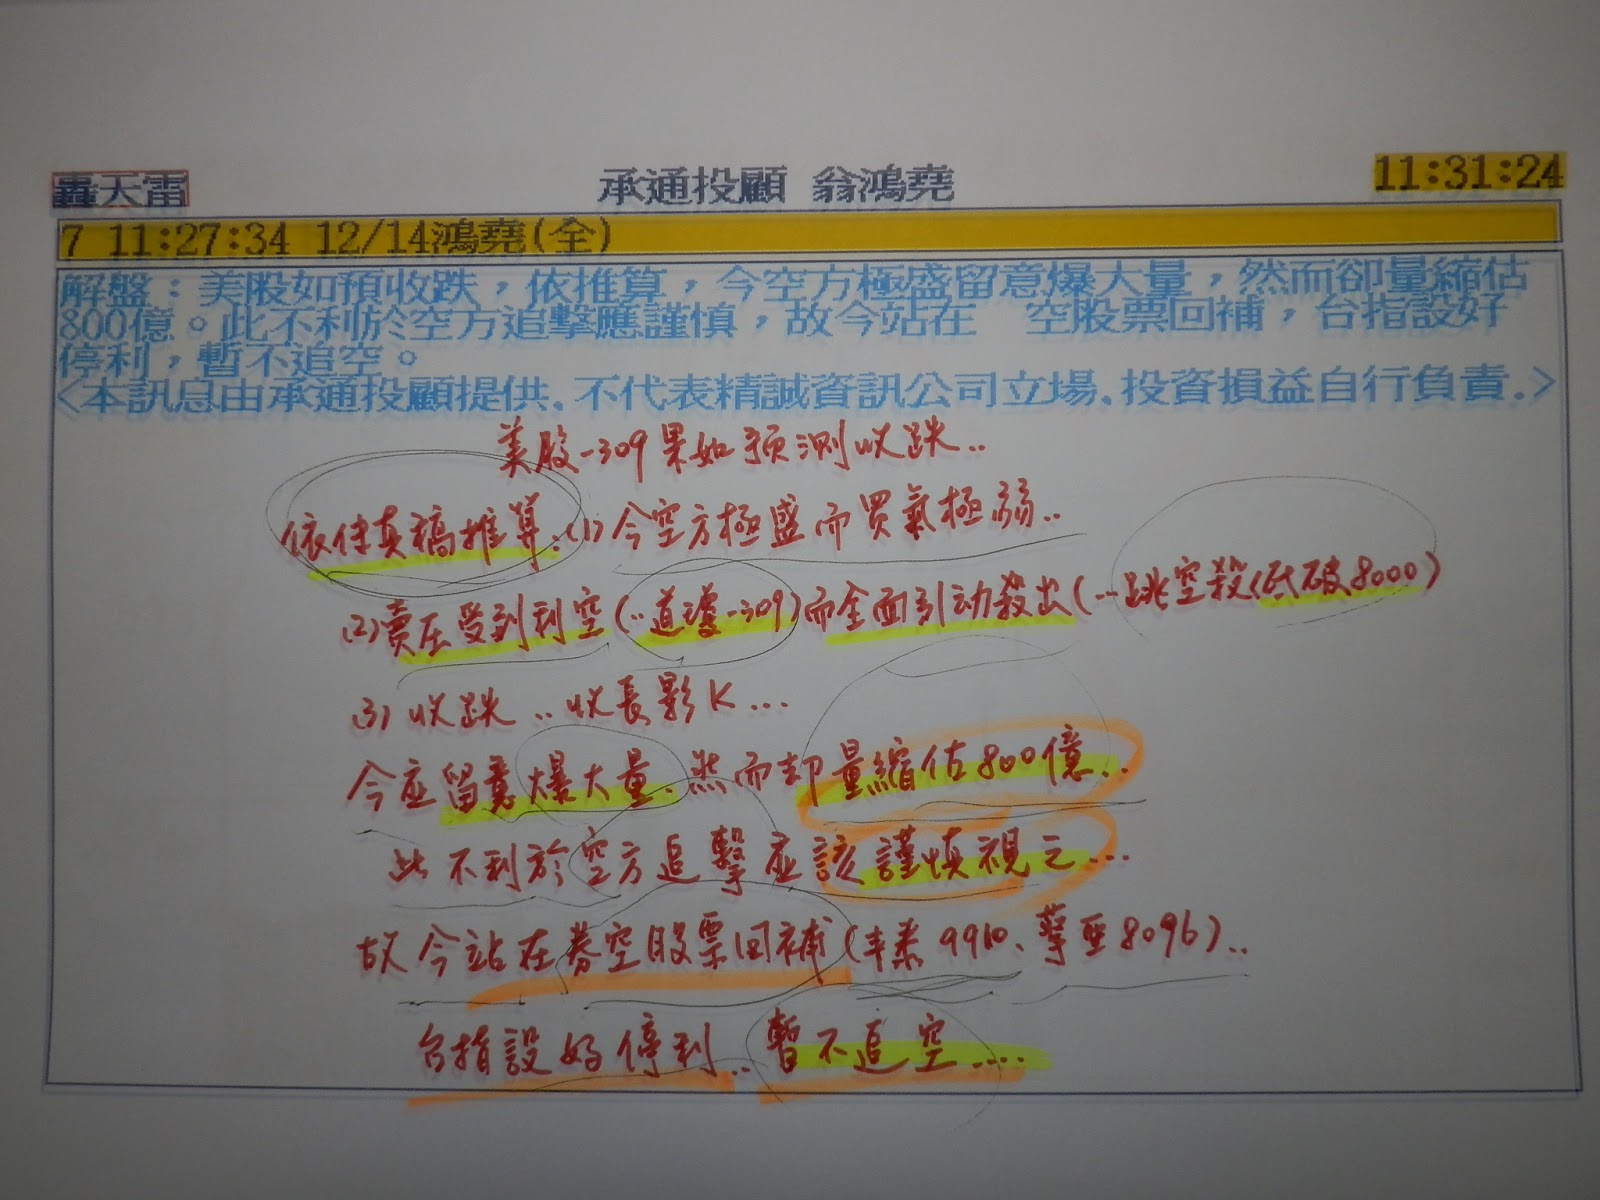 轟天雷
承通投顧 翁鴻堯
11:31:24
7 11:27:34 12/14鴻堯(全)
解盤：美股如預收跌，依推算，今空方極盛留意爆大量，然而卻量縮估
800億。此不利於空方追擊應謹慎，故今站在 空股票回補，台指設好
停利，暫不追空。
<本訊息由承通投顧提供.不代表精誠資訊公司立場.投資損益自行負責.>
美股-309果如預測收跌..
依傳真稿推算:(1)今空方極盛而買氣極弱..
(2)賣压受到利空(..道瓊-309)而全面引動殺出(…跳空殺低破8000)
(3)收跌..收長影K...
今应留意爆大量.然而却量縮估800億..
此不利於空方追擊应該謹慎視之...
故今站在券空股票回補(丰泰9910、擎亜8096)..
台指設好停利..暫不追空....